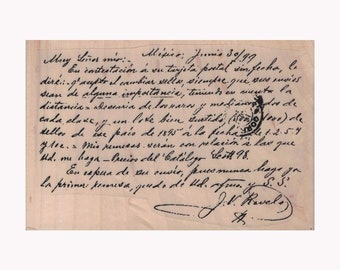 México, Junio 30/99
Muy Señor mio:-
En contestación á su tarjeta postal sin fecha, le
diré:- Acepto el cambiar sellos, siempre que sus envios
sean de alguna importancia, teniendo en cuenta la
distancia.= Desearia de los raros y medianos, dos de
cada clase, y un lote bien surtido
sellos de su pais de 1895 á la fecha
- Mis remesas serán con relación á las que
Ud. me haga - Precios del Catálogo Scott 98.
En espera de su envio, pues nunca hago yo
la primera remesa, quedo de Ud. afmo y S. S.
J. V. Revelo